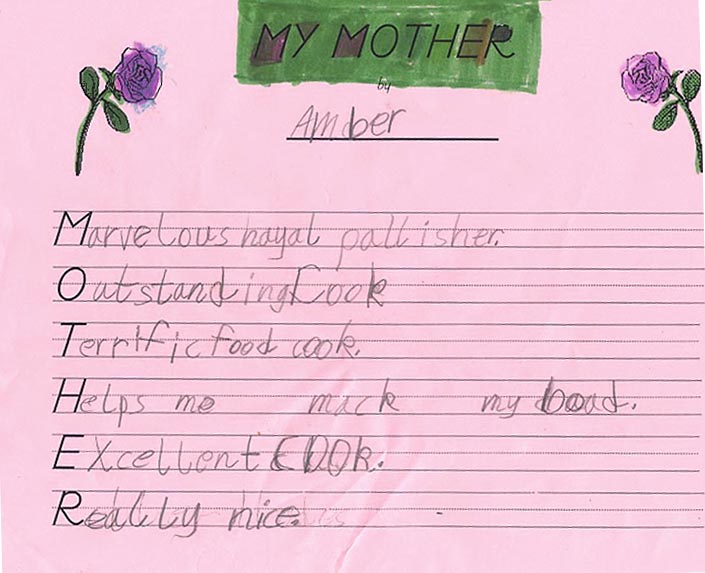 MY MOTHER
by
Amber
Marvelous hayal pallisher.
Outstanding Cook
Terrific food cook.
Helps me mack my boad.
Excellent COOk.
Really nice.